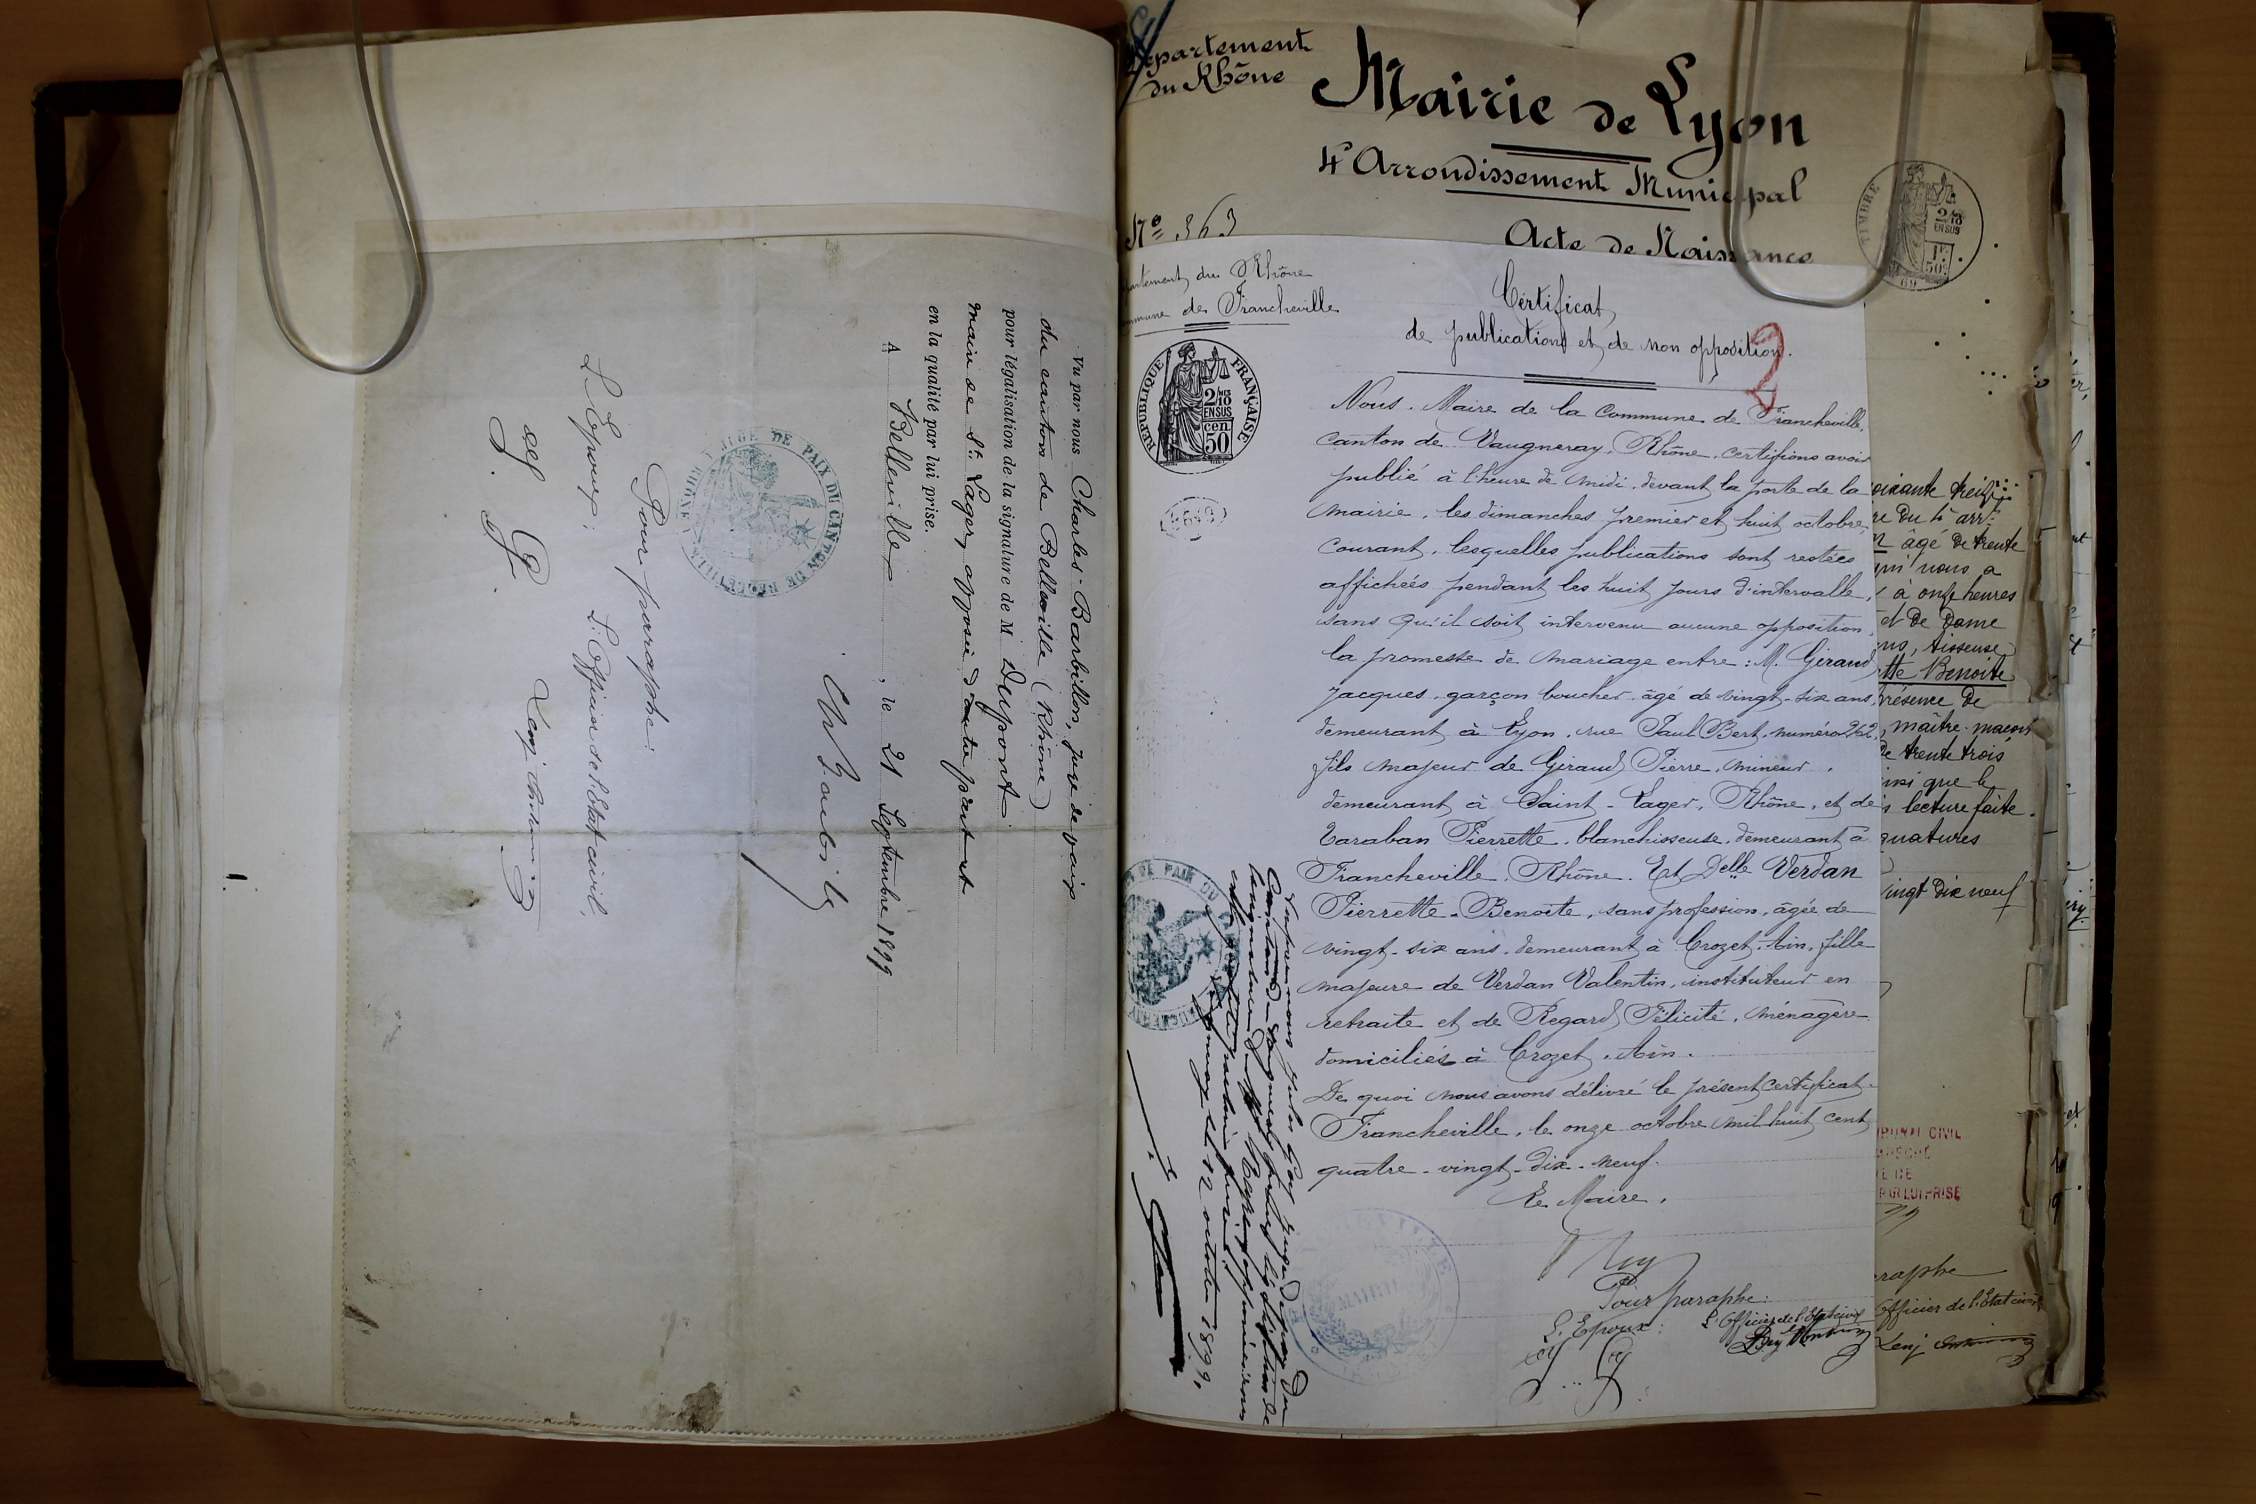 Vu par nous Charles Barbillon, Juge de paix
du canton de Belleville (Rhône)
pour légalisation de la signature de M Dupont
maire de St. Lager, apposée d'autre part et
en la qualité par lui prise.
A Belleville, le 21 Septembre 1899
JUGE DE PAIX DU CANTON DE BELLEVILLE
Pour paraphe:
L'Epoux; L'Officier de l'Etat civil,
Département
du Rhône
Mairie de Lyon
4e Arrondissement Municipal
No 363
Acte de Naissance
TIMBRE
2/10
EN SUS
1F
50c
69
artement du Rhône
mmune de Francheville
REPUBLIQUE FRANÇAISE
2/10
EN SUS
cen
50
Certificat
de publication et de non opposition.
2
Nous. Maire de la Commune de Francheville,
canton de Vaugneray, Rhône. certifions avoir
publié à l'heure de midi, devant la porte de la
mairie, les dimanches premier et huit octobre,
courant, lesquelles publications sont restées
affichées pendant les huit jours d'intervalle,
sans qu'il soit intervenu aucune opposition,
la promesse de mariage entre: M. Giraud
Jacques, garçon boucher, âgé de vingt-six ans,
demeurant à Lyon, rue Paul Bert, numéro 262,
fils majeur de Giraud Pierre, mineur,
demeurant à Saint-Lager, Rhône, et de
Taraban Pierrette, blanchisseuse, demeurant à
Francheville. Rhône. Et Delle Verdan
Pierrette-Benoite, sans profession, âgée de
vingt-six ans, demeurant à Crozet. Ain, fille
majeure de Verdan Valentin, instituteur en
retraite et de Regard Félicité, ménagère
domiciliés à Crozet. Ain.
De quoi nous avons délivré le présent certificat.
Francheville, le onze octobre mil huit cent
quatre-vingt-dix-neuf.
Le Maire,
Pour paraphe:
L'Epoux: L'Officier de l'Etat civil
Vu par nous Jules juge de paix du
Canton de Vaugneray
la signature de
Vaugneray le 12 octobre 1899,
oixante treize
re du 4e arrt
âgé de trente
qui nous a
à onze heures
et de Dame
ans, tisseuse
tte Benoite
présence de
, maître-maçon
de trente trois
insi que le
s lecture faite.
gnatures
vingt dix neuf
TRIBUNAL CIVIL
E DE
PAR LUI PRISE
araphe
Officier de l'Etat civil